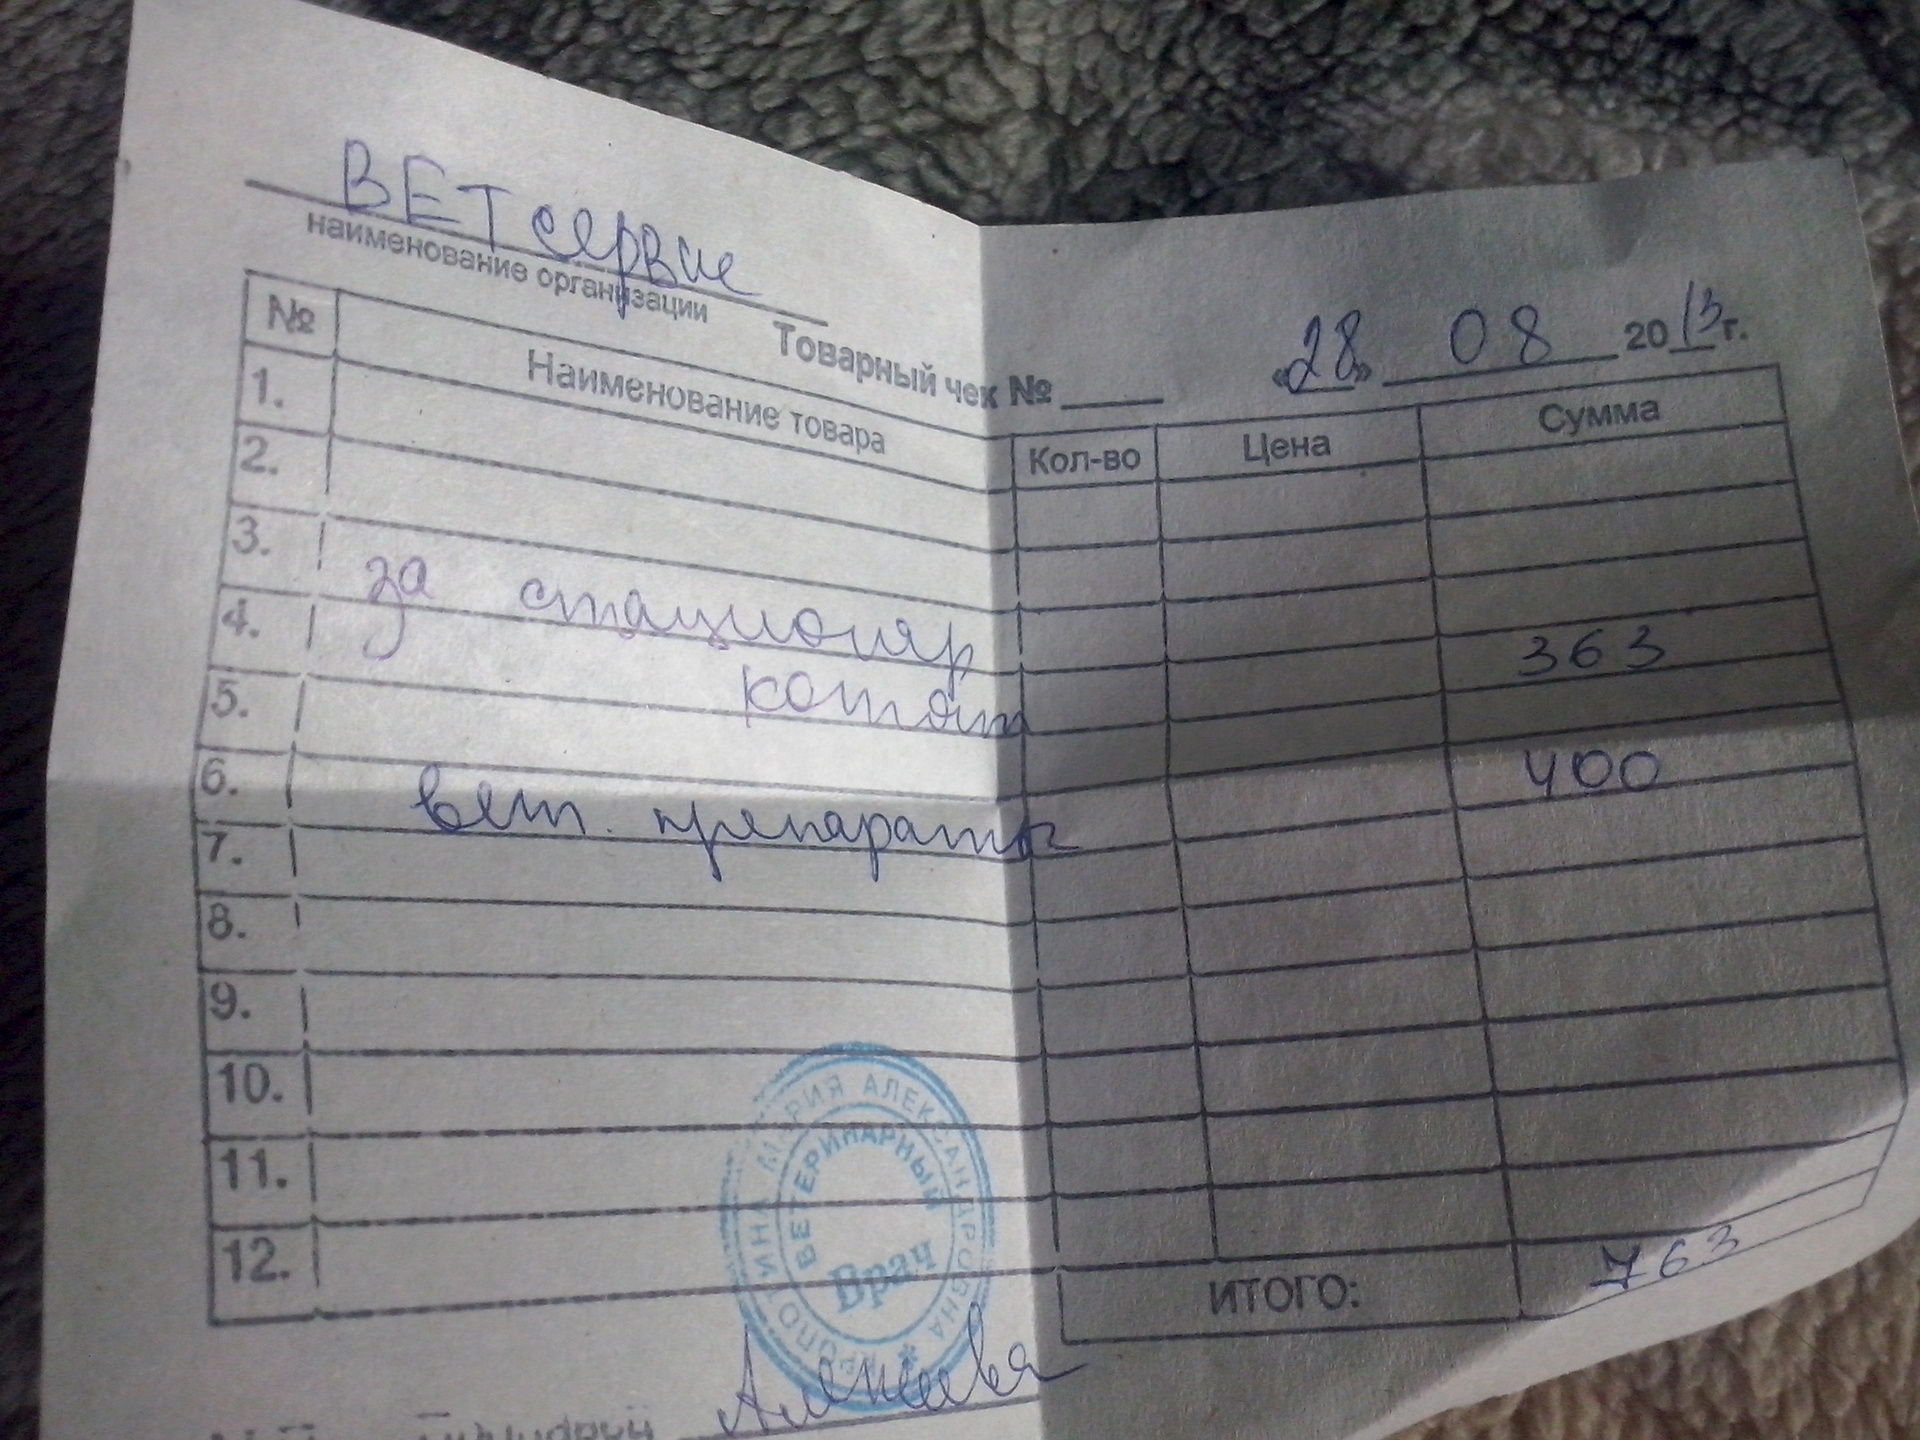 ВЕТ сервис
наименование организации
Товарный чек № «28» 08 2013г.
№ Наименование товара Кол-во Цена Сумма
1.
2.
3.
4. за стационар 363
5. котят
6. 400
7. вет. препараты
8.
9.
10.
11.
12.
ИТОГО: 763
МАРИЯ АЛЕКСАНДРОВНА
ВЕТЕРИНАРНЫЙ
Врач